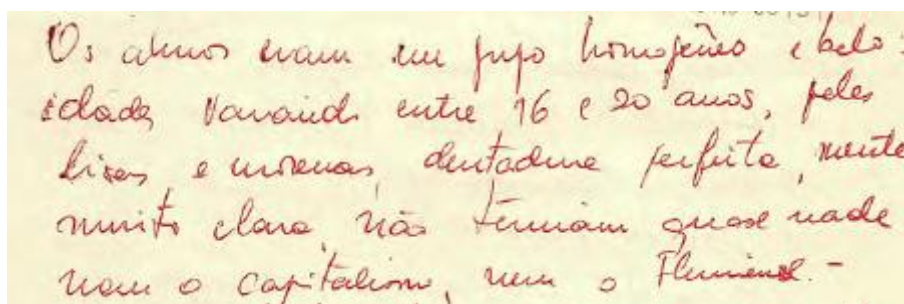 Os alunos eram um grupo homogêneo e belo:
idades variando entre 16 e 20 anos, peles
lisas e morenas, dentadura perfeita, mente
muito clara, não temiam quase nada
nem o capitalismo, nem o Fluminense. -